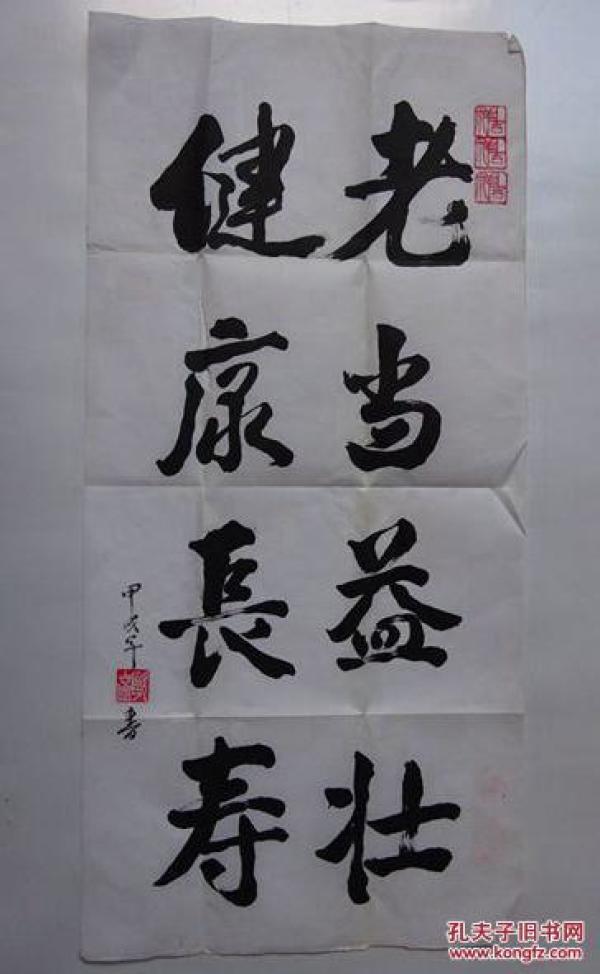 老当益壮
健康長寿
甲戌年
書
孔夫子旧书网
www.kongfz.com